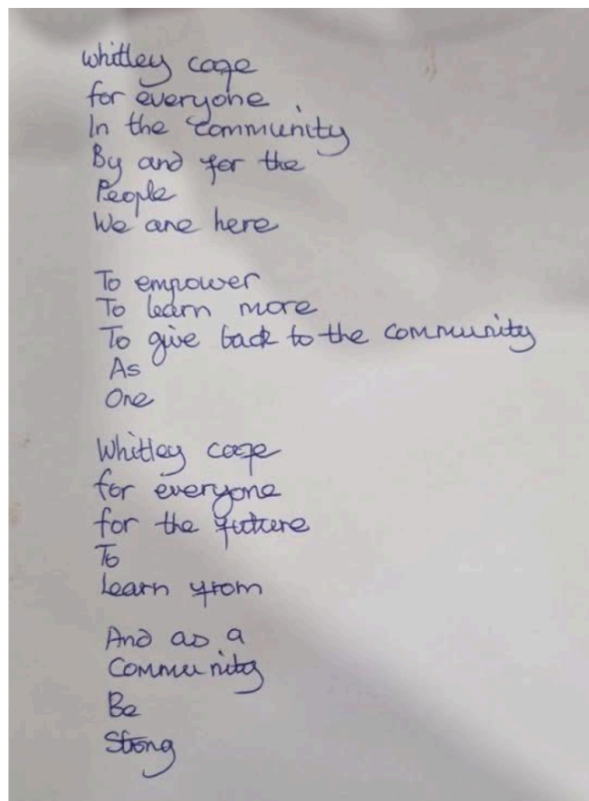 whitley cafe
for everyone
In the community
By and for the
People
We are here
To empower
To learn more
To give back to the community
As
One
Whitley cafe
for everyone
for the future
To
Learn from
And as a
Community
Be
Strong